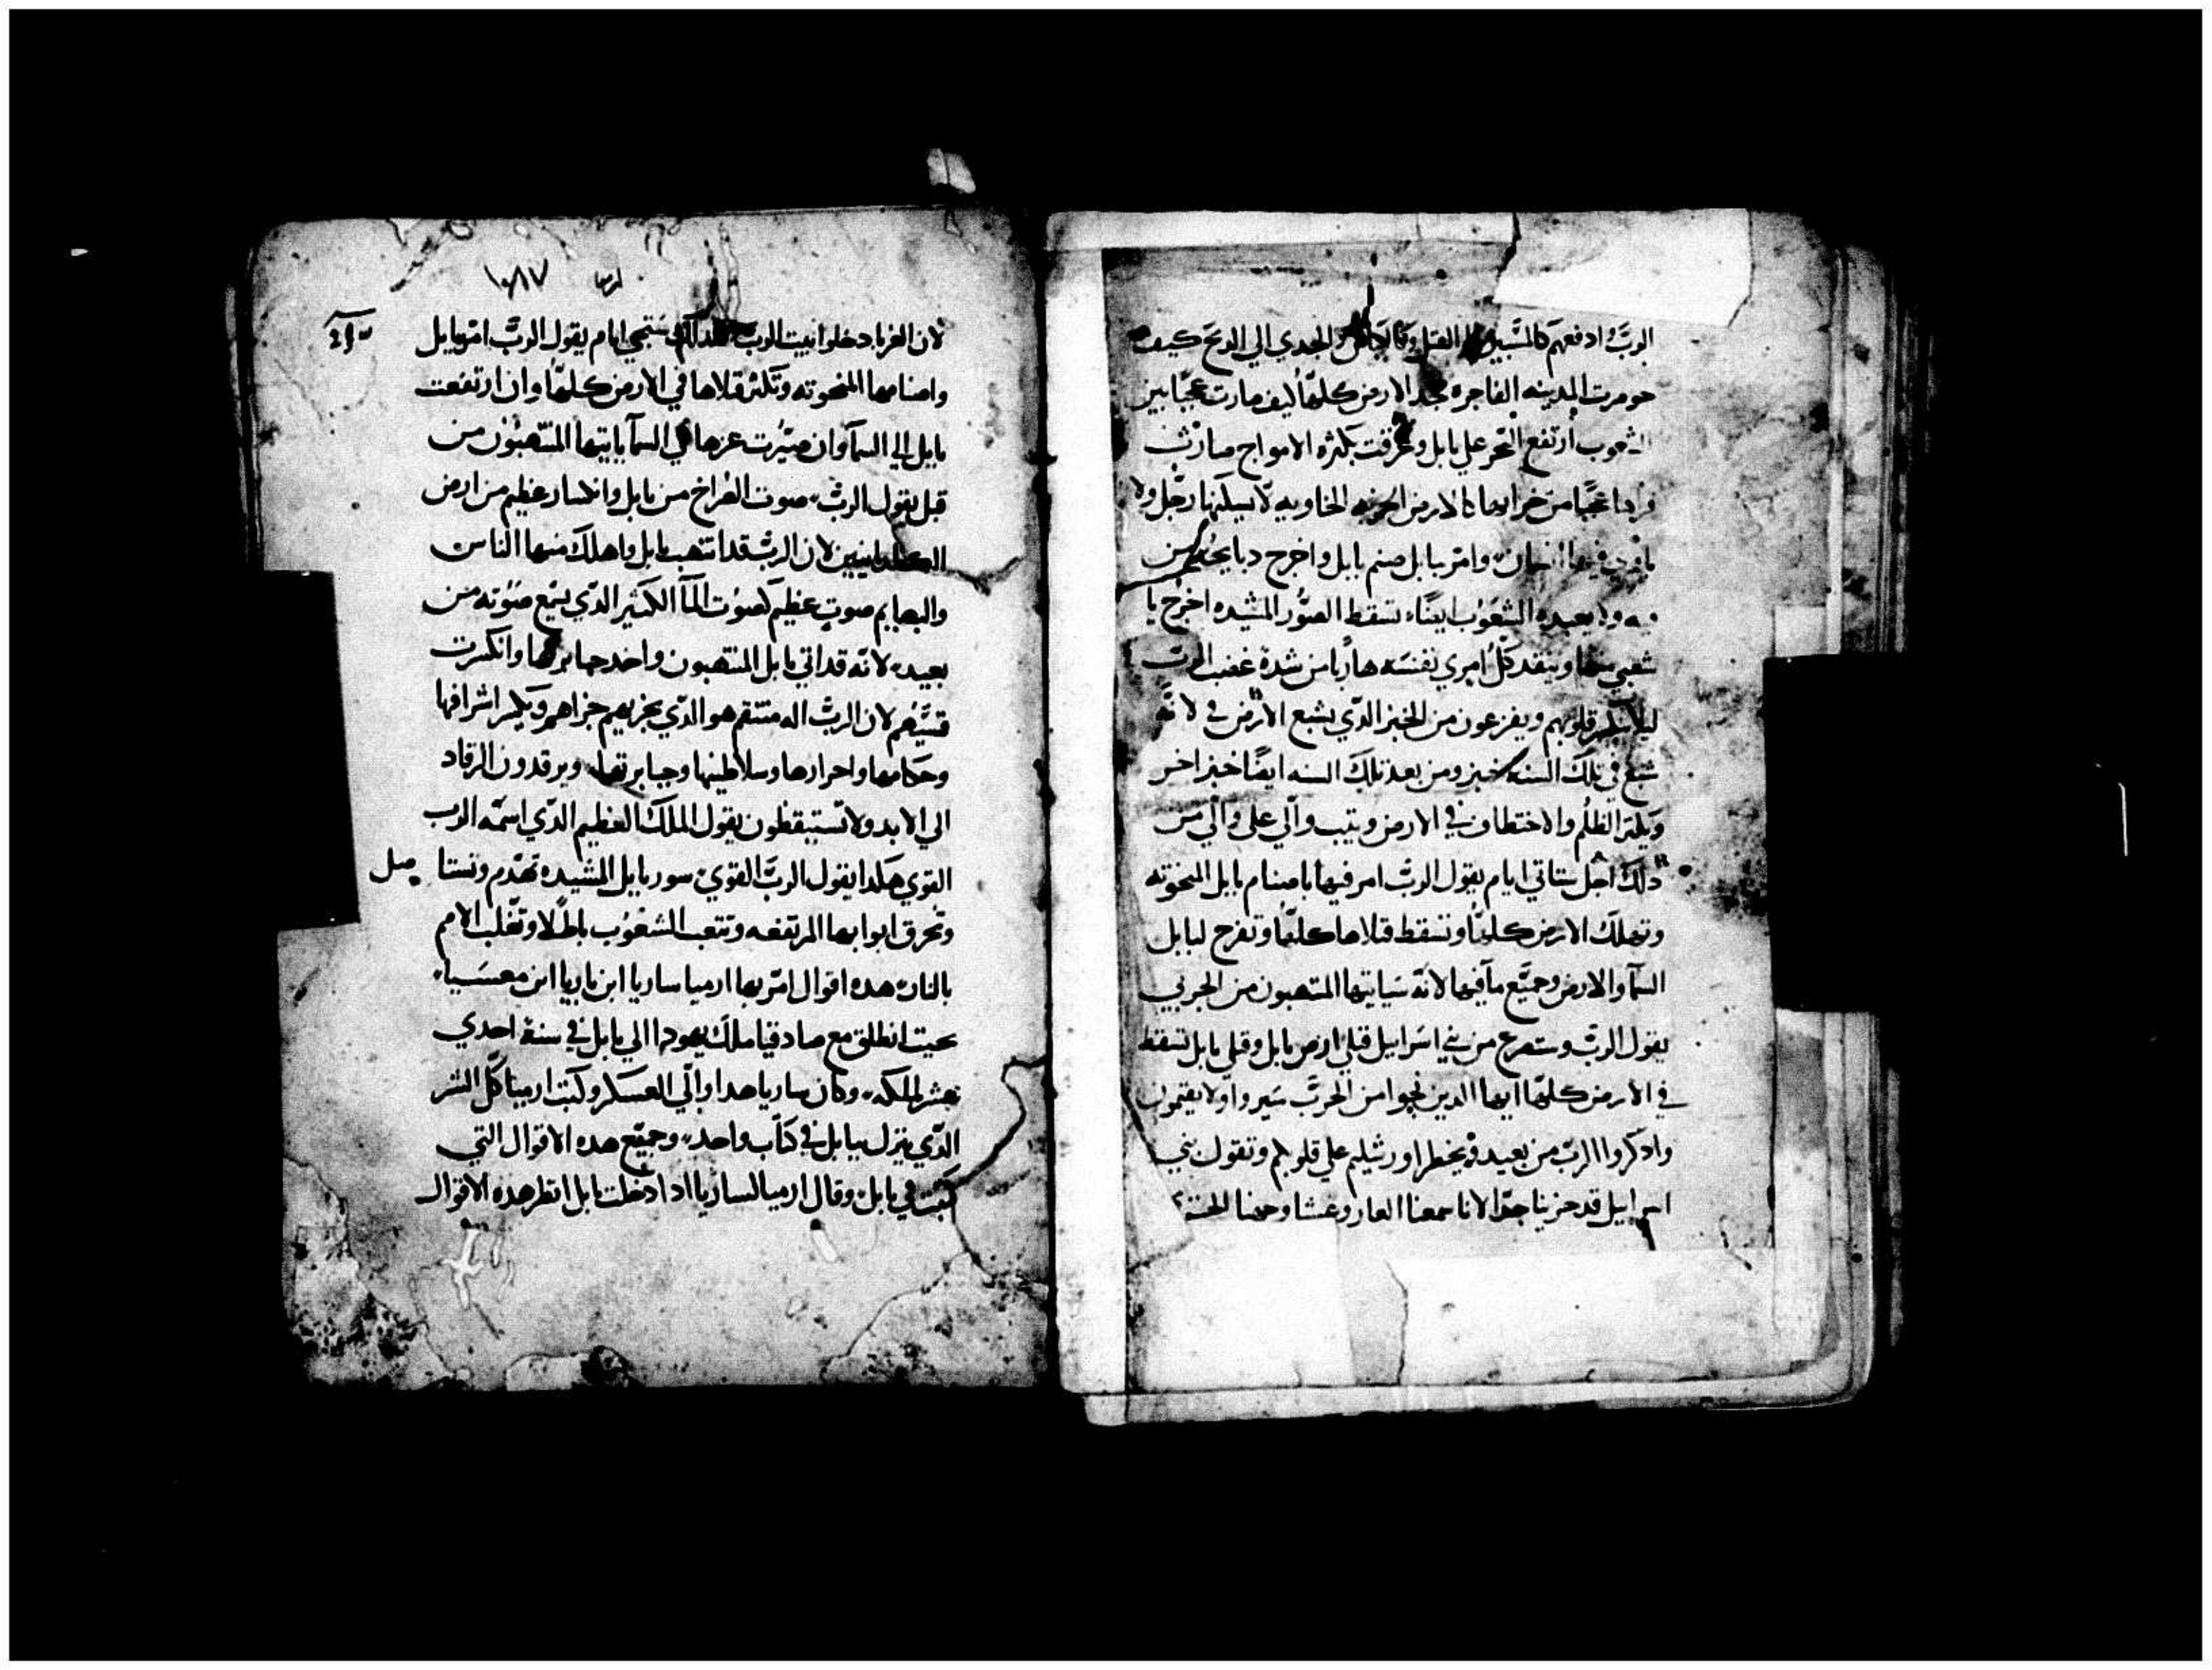 الرب ادفعهم كالمسبين القتل وكالكباش والجدي الي الدبح كيف
حومرت المدينه الفاجره مجد الارض كلها كيف صارت عجبا بين
الشعوب ارتفع البحر علي بابل وغرقت بكثره الامواج صارت
قراها عجبا من خرابها كالارض الخربه الخاويه لا يسلكها رجل ولا
ياوي فيها انسان وامر ببابل صنم بابل واخرج دبايحه من
فيه ولا يعبده الشعوب ايضا تسقط الصور المشيده اخرج يا
شعبي منها وينقد كل امري نفسه هاربا من شدة غضب الرب
ليلا تنكسر قلوبهم ويفزعون من الخبز الدي يشبع الارض في لانه
شبع في تلك السنه خبز ومن بعد تلك السنه ايضا خبز اخر
ويكثر الظلم والاختطاف في الارض ويتب والي علي والي من
دلك اجل ستاتي ايام يقول الرب امر فيها باصنام بابل المنحوته
وتهلك الارض كلها وتسقط قتلاها كلها وتفرح لبابل
السما والارض وجميع ما فيها لانه سياتيها المنتهبون من الجربي
يقول الرب وستصرع من بني اسراييل قتلي ارض بابل وقتلي بابل تسقط
في الارض كلها ايها الدين نجوا من الحرب سيروا ولا يقتمون
وادكروا الرب من بعيد ويخطر اورشليم علي قلوبكم وتقول بني
اسراييل قد حزينا جدا لانا سمعنا العار وعشا وجهنا الحسد
ارميا ١٠٨٧
لان الغربا دخلوا بيت الرب لدلك ستجي ايام يقول الرب امر ببابل
واصنامها المنحوته وتكثر قتلاها في الارض كلها وان ارتفعت
بابل الي السما وان صيرت عزها في السما ياتيها المنتهبون من
قبل يقول الرب صوت الصراخ من بابل وانكسار عظيم من ارض
الكلدانيين لان الرب قد انتهب بابل واهلك منها الناس
والبهايم صوت عظيم كصوت الما الكثير الدي يسمع صوته من
بعيد لانه قد اتي بابل المنتهبون واخد جبابرتها وانكسرت
قسيهم لان الرب اله منتقم هو الدي يجزيهم جزاهم ويكسر اشرافها
وحكامها واحرارها وسلاطينها وجبابرتها ويرقدون الرقاد
الي الابد ولا تستيقظون يقول الملك العظيم الدي اسمه الرب
القوي هكدا يقول الرب القوي سور بابل المشيده تهدم وتستا صل
وتحرق ابوابها المرتفعه وتتعب الشعوب باطلا وتغلب الامم
بالنار هده اقوال امر بها ارميا ساريا ابن ناريا ابن معسيا
حيت انطلق مع صادقيا ملك يهودا الي بابل في سنة احدي
عشر لملكه وكان ساريا هدا والي العسكر وكتب ارميا كل الشر
الدي ينزل ببابل في كتاب واحد وجميع هده الاقوال التي
كتبت في بابل وقال ارميا لساريا ادا دخلت بابل انظر هده الاقوال